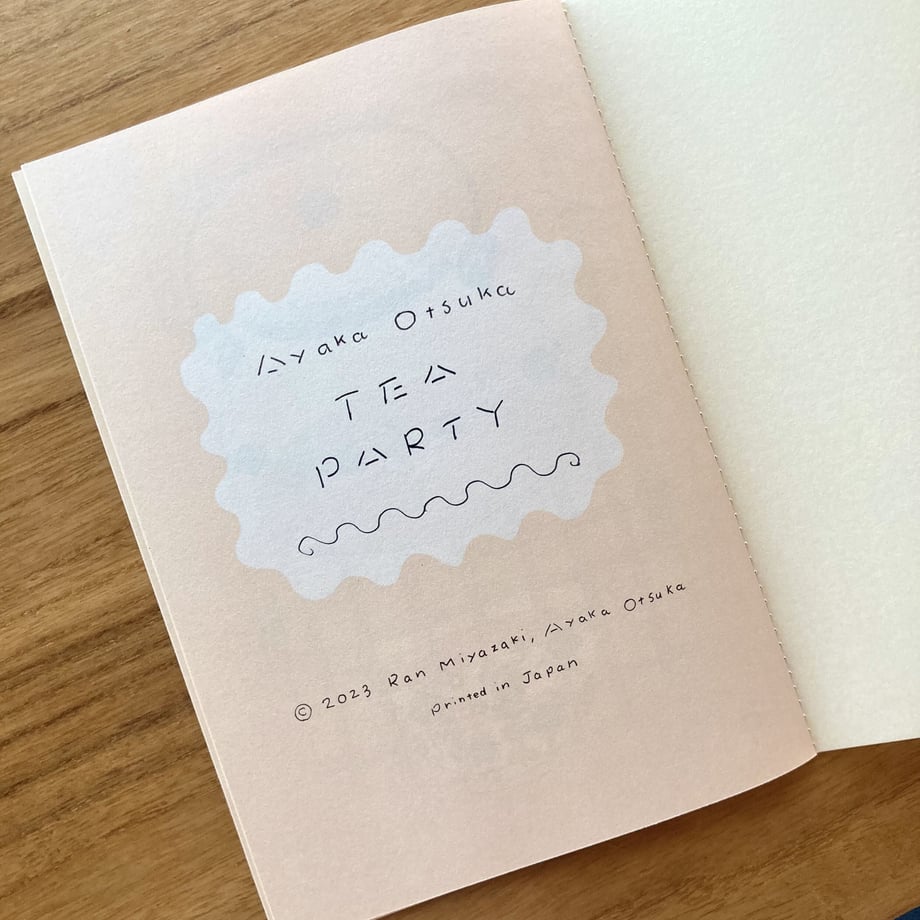 Ayaka Otsuka
TEA
PARTY
© 2023 Ran Miyazaki, Ayaka Otsuka
printed in Japan